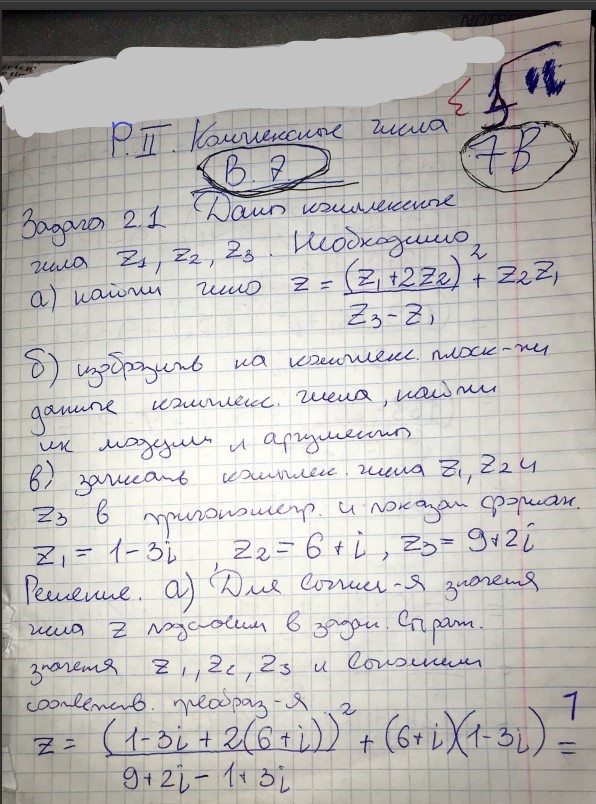 Р. II. Комплексные числа
В. 7
7В
Задача 2.1 Даны комплексные
числа z₁, z₂, z₃. Необходимо
а) найти число z = (z₁+2z₂)²/(z₃-z₁) + z₂z₁
б) изобразить на комплекс. плоск-ти
данные комплекс. числа, найти
их модули и аргументы
в) записать комплек. числа z₁, z₂ и
z₃ в тригонометр. и показат формах.
z₁ = 1-3i, z₂ = 6+i, z₃ = 9+2i
Решение. а) Для значения
числа z подставим в задан.
значения z₁, z₂, z₃ и
соответств. преобраз-я
z = (1-3i+2(6+i))²/(9+2i-1+3i) + (6+i)(1-3i) =
1